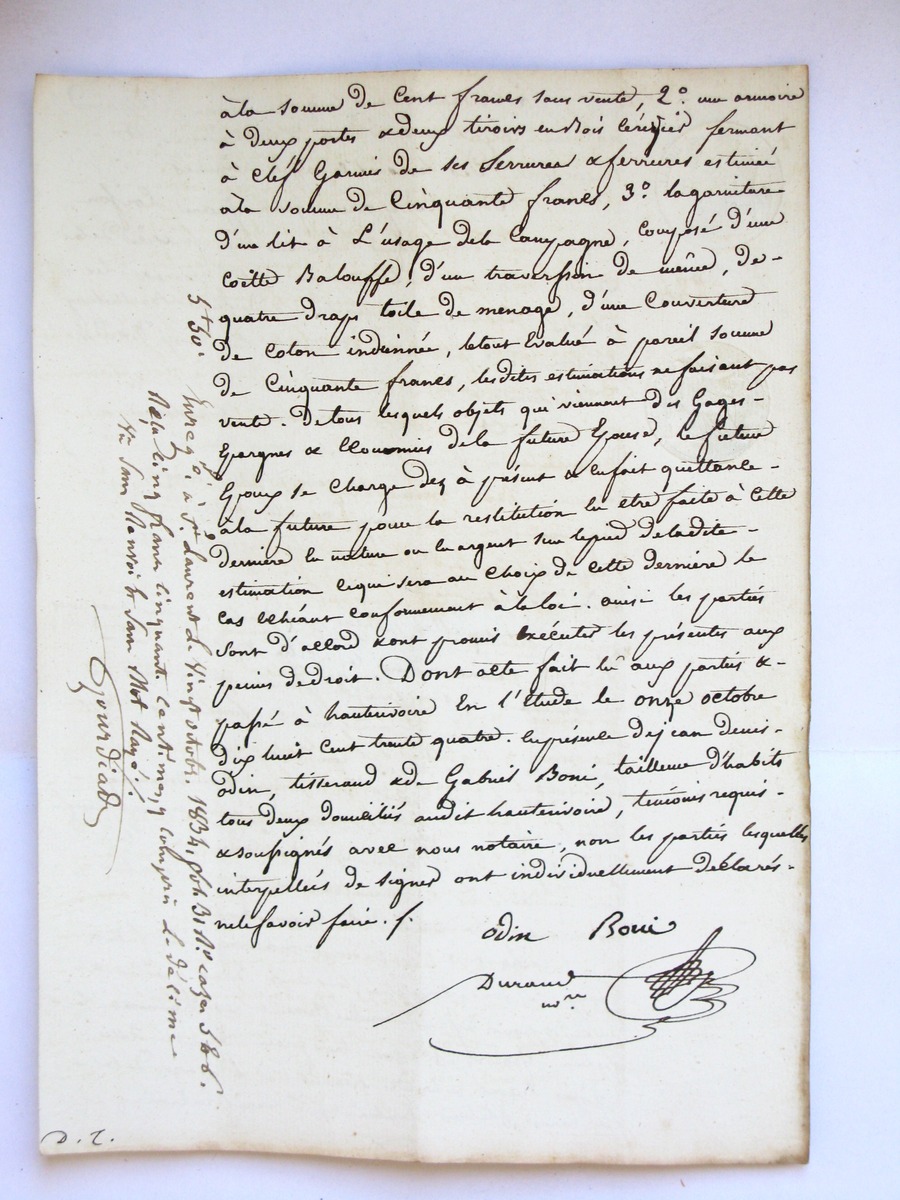 à la somme de Cent francs sans vente, 2.° une armoire
à deux portes & deux tiroirs en Bois Cérisier fermant
à clef Garnies de ses Serrures & ferrures estimée
à la somme de Cinquante francs, 3.° la garniture
d'un lit à L'usage dela Campagne, Composé d'une
Coëtte Balouffe, d'un traversin de même, de-
quatre draps toile de menage, d'une Couverture
de Coton indiennée, letout Evalué à pareil somme
de Cinquante francs, lesdites estimations ne faisant pas
vente. De tous lesquels objets qui viennent des Gages-
Epargnes & Economies de la future Epouse, le futur
Epoux se charge dez à présent & en fait quittance-
àla future pour la restitution en etre faite à Cette
dernière En nature ou En argent sur lepied deladite-
estimation cequi sera au Choix de cette dernière le
Cas Echéant Conformement àlaloi. ainsi les parties
Sont d'accord & ont promis Exécuter les présentes aux
peines dedroit. Dont acte fait lu aux parties &-
passé à hauterivoire En l'étude le onze octobre
Dix huit Cent trente quatre. En présence de jean denis-
odin, tisserand & de Gabriel Boni, tailleur d'habits
tous deux domiciliés audit hauterivoire, témoins requis-
& soussignés avec nous notaire, non les parties lesquelles
interpellées de signer ont individuellement déclarés-
nelesavoir faire. /.
odin Boni
Durand
no.re
5f 50c
Enregé. à St. Laurent le vingt octobre 1834, fol. 31 R.° cases 5 & 6.
Reçu Cinq francs Cinquante Centimes, y compris le décime
Sans Renvoi & Sans Mot Rayé /.
Gourdiad
D. T.